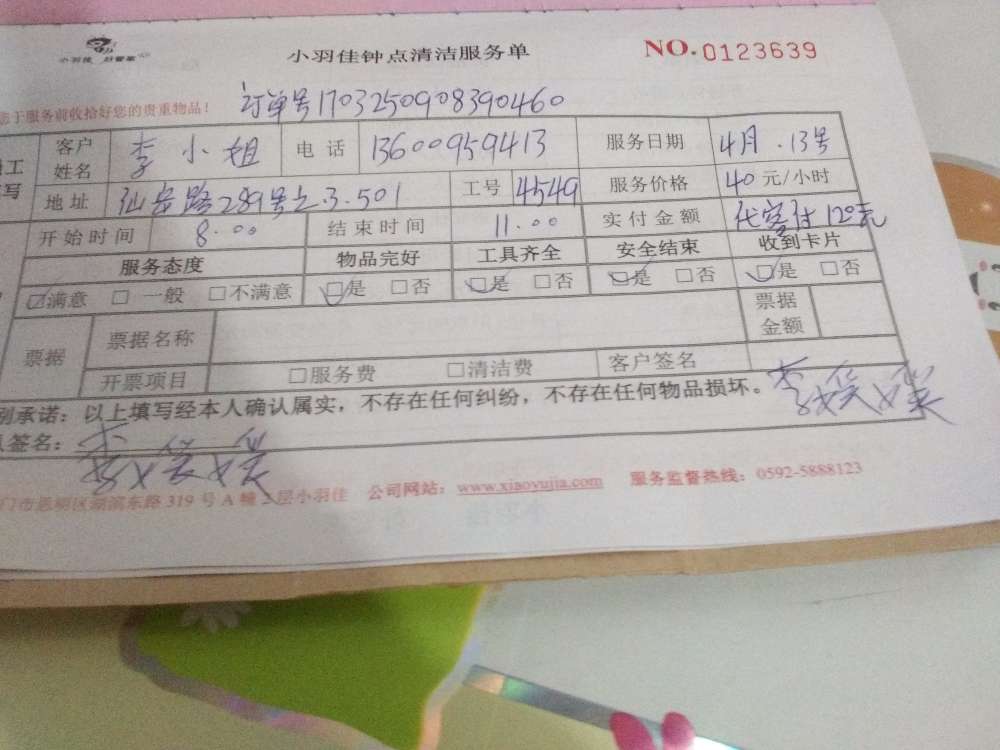 小羽佳 好管家
小羽佳钟点清洁服务单
NO.0123639
您于服务前收拾好您的贵重物品！
订单号1703250908390460
工 客户姓名 李小姐 电话 13600959413 服务日期 4月.13号
写 地址 仙岳路289号之3.501 工号 4549 服务价格 40元/小时
开始时间 8:00 结束时间 11:00 实付金额 代客付120元
服务态度 物品完好 工具齐全 安全结束 收到卡片
☑满意 □一般 □不满意 ☑是 □否 ☑是 □否 ☑是 □否 ☑是 □否
票据 票据名称 票据金额
开票项目 □服务费 □清洁费 客户签名
别承诺：以上填写经本人确认属实，不存在任何纠纷，不存在任何物品损坏。
签名：
门市思明区湖滨东路319号A幢二层小羽佳 公司网站：www.xiaoyujia.com 服务监督热线：0592-5888123